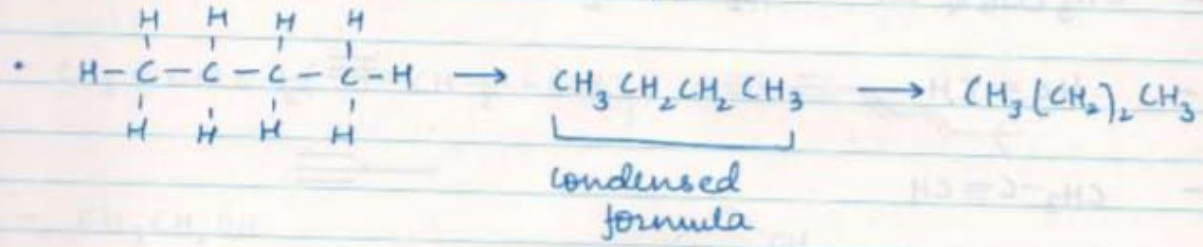 H H H H
• H-C-C-C-C-H → CH₃CH₂CH₂CH₃ → CH₃(CH₂)₂CH₃
H H H H
condensed
formula